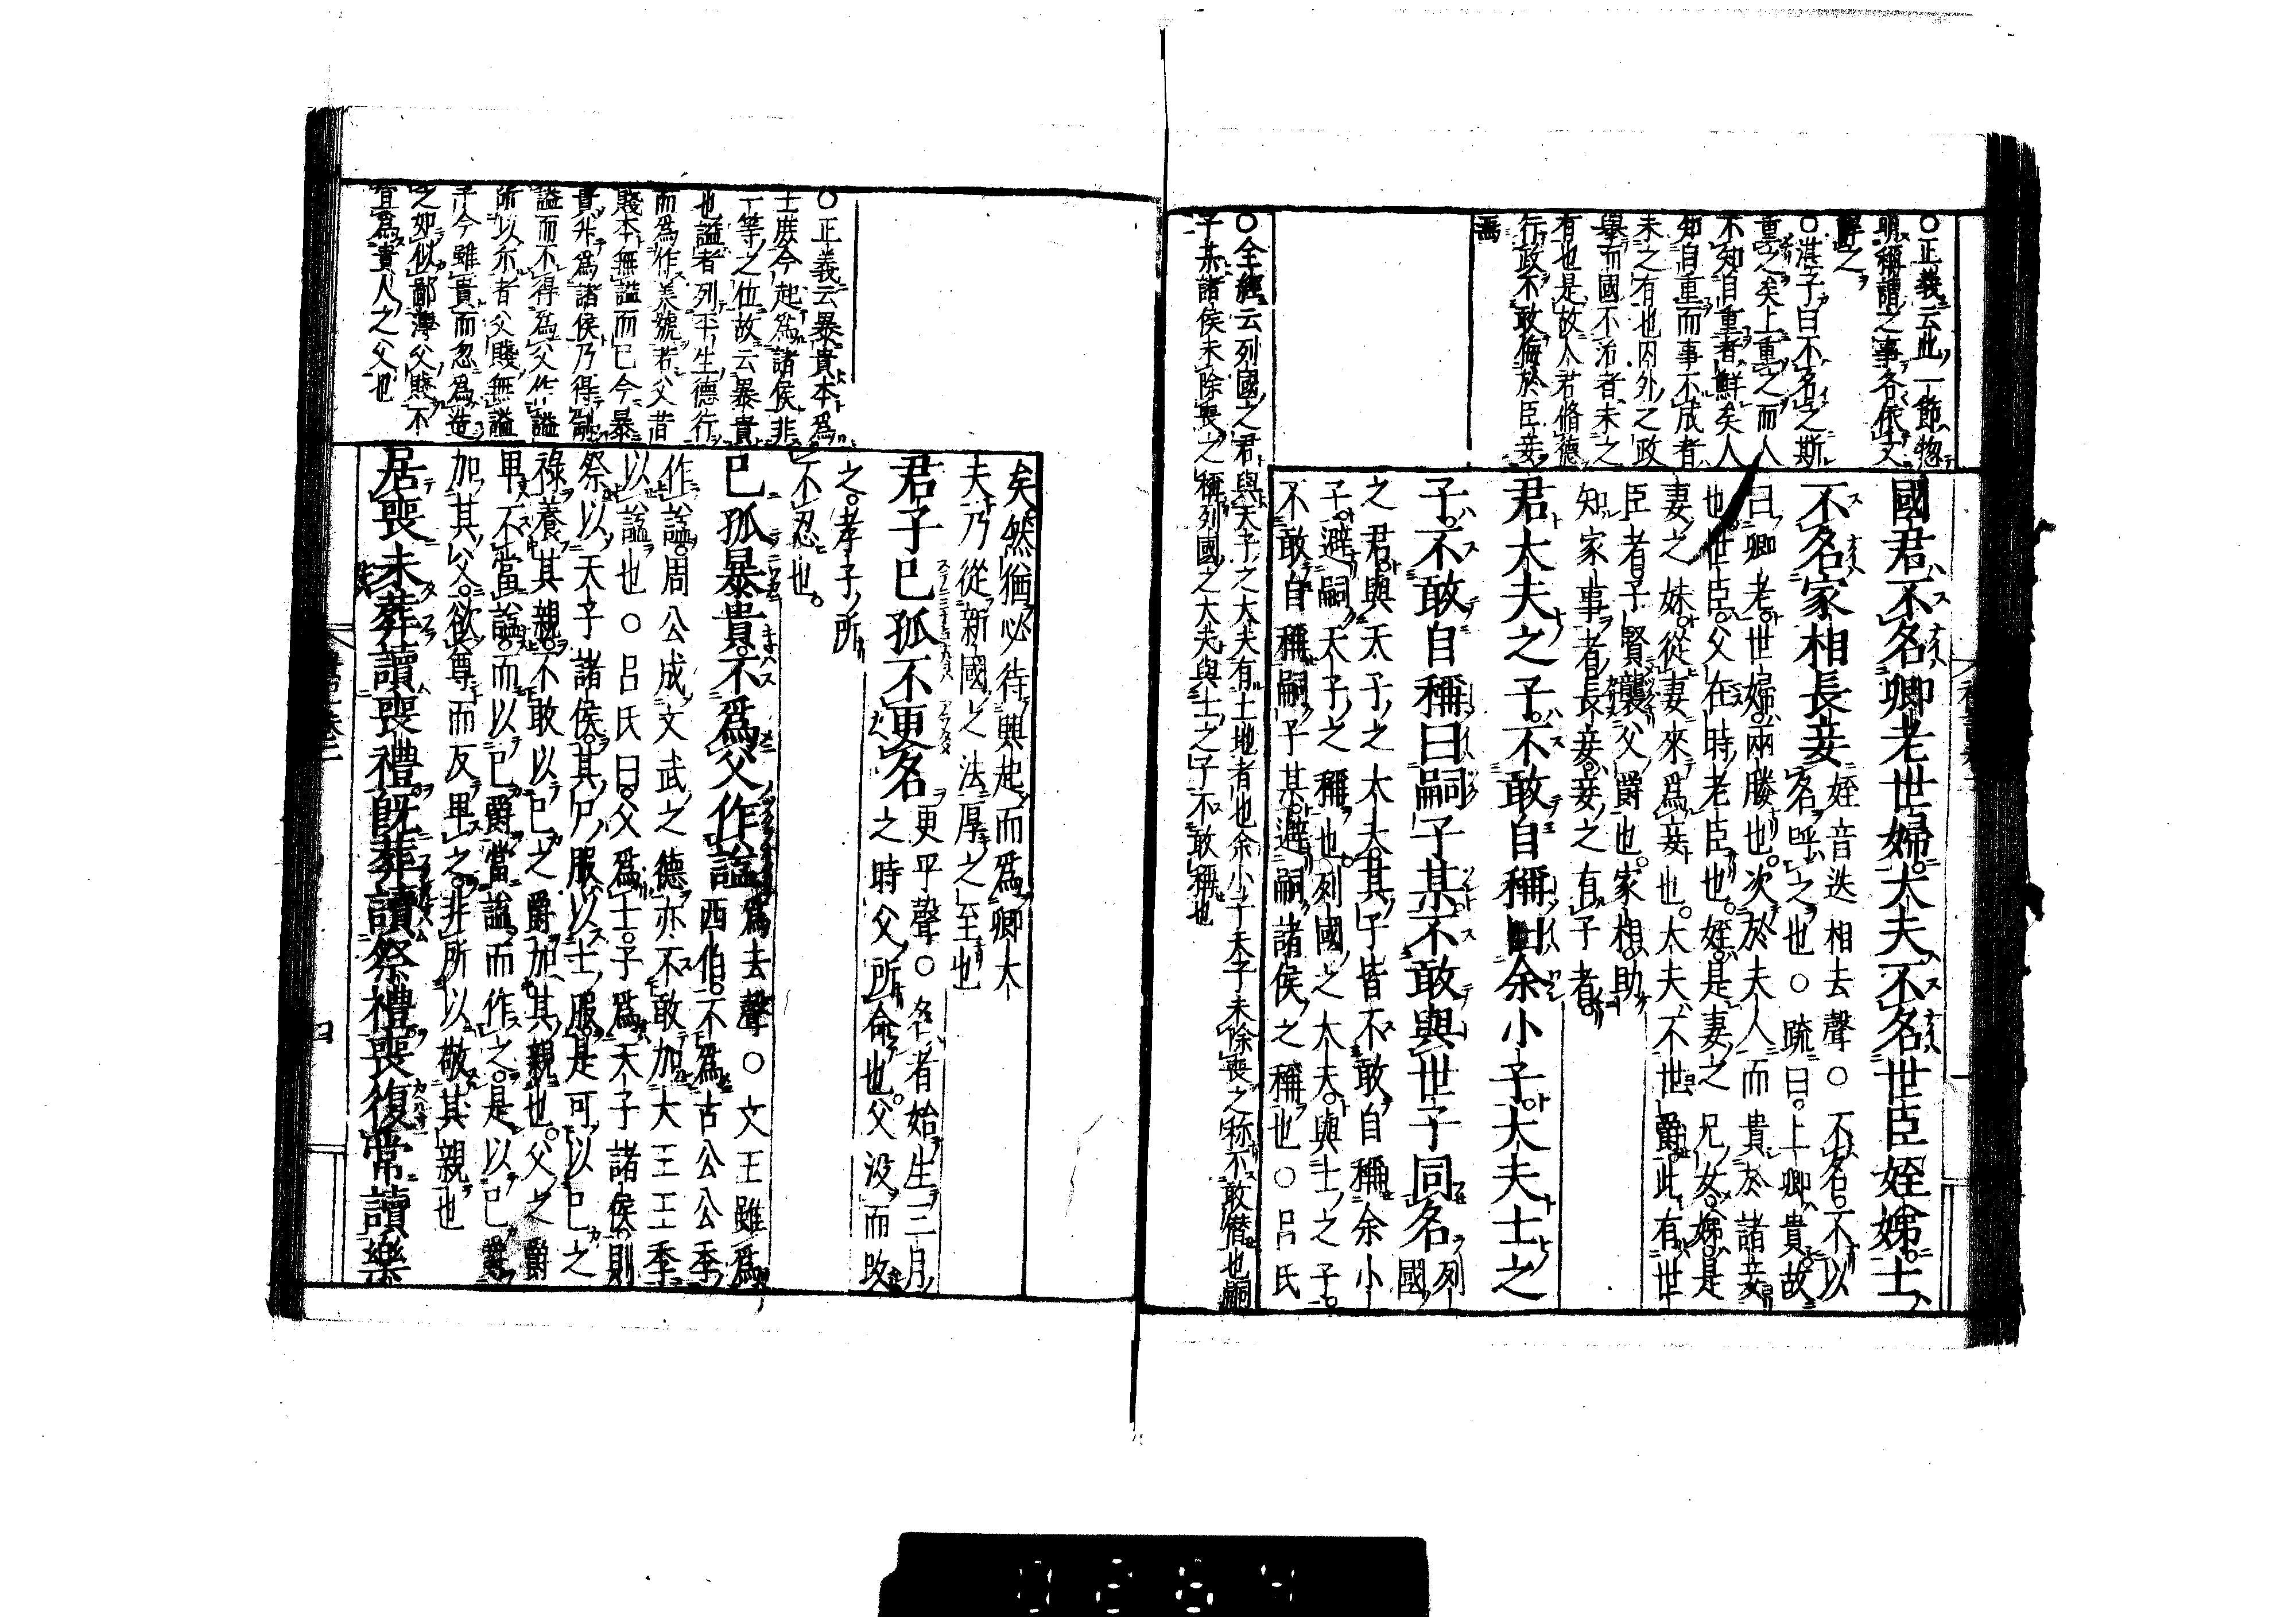 國君不名卿老世婦大夫不名世臣姪娣士
不名家相長妾
姪音迭相去聲○不名不以
名呼之也○疏曰上卿貴故
曰卿老世婦兩媵也次於夫人而貴於諸妾
也世臣父在時老臣也姪是妻之兄女娣是
妻之妹從妻來爲妾也大夫不世爵此有世
臣者子賢襲父爵也家相助
知家事者長妾妾之有子者
君大夫之子不敢自稱曰余小子大夫士之
子不敢自稱曰嗣子某不敢與世子同名
列國
之君與天子之大夫其子皆不敢自稱余小
子避嗣天子之稱也列國之大夫與士之子
不敢自稱嗣子某避嗣諸侯之稱也○呂氏
○正義云此一節惣
明稱謂之事各依文
解之
○湛子曰不名之斯
重之矣上重之而人
不知自重者鮮矣人
知自重而事不成者
未之有也內外之政
舉而國不治者未之
有也是故人君脩德
行政不敢侮於臣妾
焉
○全經云列國之君與天子之大夫有土地者也余小子天子未除喪之称不敢僭也嗣
子某諸侯未除喪之稱列國之大夫與士之子不敢稱也
矣然猶必待興起而爲卿大
夫乃從新國之法厚之至也
君子已孤不更名
更平聲○名者始生三月
之時父所命也父没而改
之孝子所
不忍也
已孤暴貴不爲父作謚
爲去聲○文王雖爲
西伯不爲古公公季
作謚周公成文武之德亦不敢加大王王季
以謚也○呂氏曰父爲士子爲天子諸侯則
祭以天子諸侯其尸服以士服是可以已之
祿養其親不敢以已之爵加其親也父之爵
卑不當謚而以已爵當謚而作之是以已爵
加其父欲尊而反卑之非所以敬其親也
居喪未葬讀喪禮旣葬讀祭禮喪復常讀樂
○正義云暴貴本爲
士庶今起爲諸侯非
一等之位故云暴貴
也謚者列平生德行
而爲作美號若父昔
賤本無謚而已今暴
貴升爲諸侯乃得制
謚而不得爲父作謚
所以尓者父賤無謚
子今雖貴而忽爲造
之如似鄙薄父賤不
宜爲貴人之父也